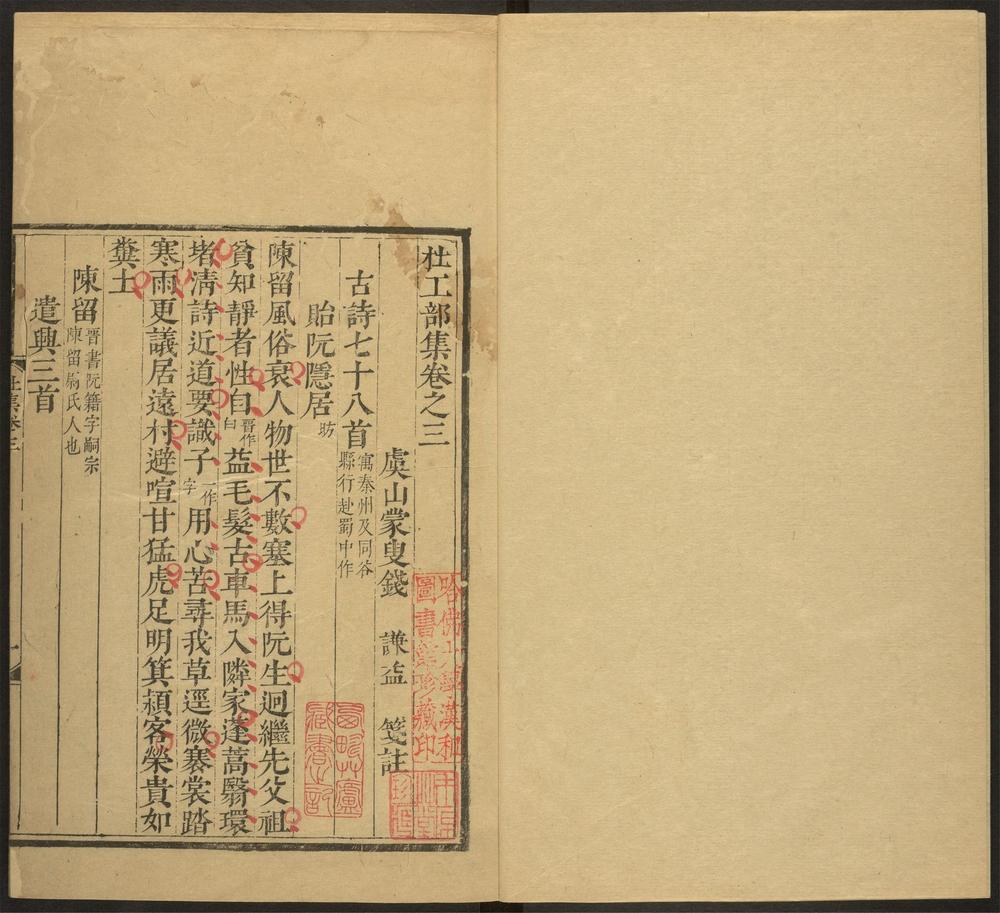 杜工部集卷之三
虞山蒙叟錢 謙益 箋註
古詩七十八首 寓秦州及同谷縣行赴蜀中作
貽阮隱居 昉
陳留風俗衰人物世不數塞上得阮生迥繼先父祖
貧知靜者性自 晋作白 益毛髮古車馬入隣家蓬蒿翳環
堵清詩近道要識子 一作字 用心苦尋我草逕微褰裳踏
寒雨更議居遠村避喧甘猛虎足明箕潁客榮貴如
糞土
陳留 晋書阮籍字嗣宗陳留尉氏人也
遣興三首
哈佛大學漢和圖書館珍藏印
藏書記